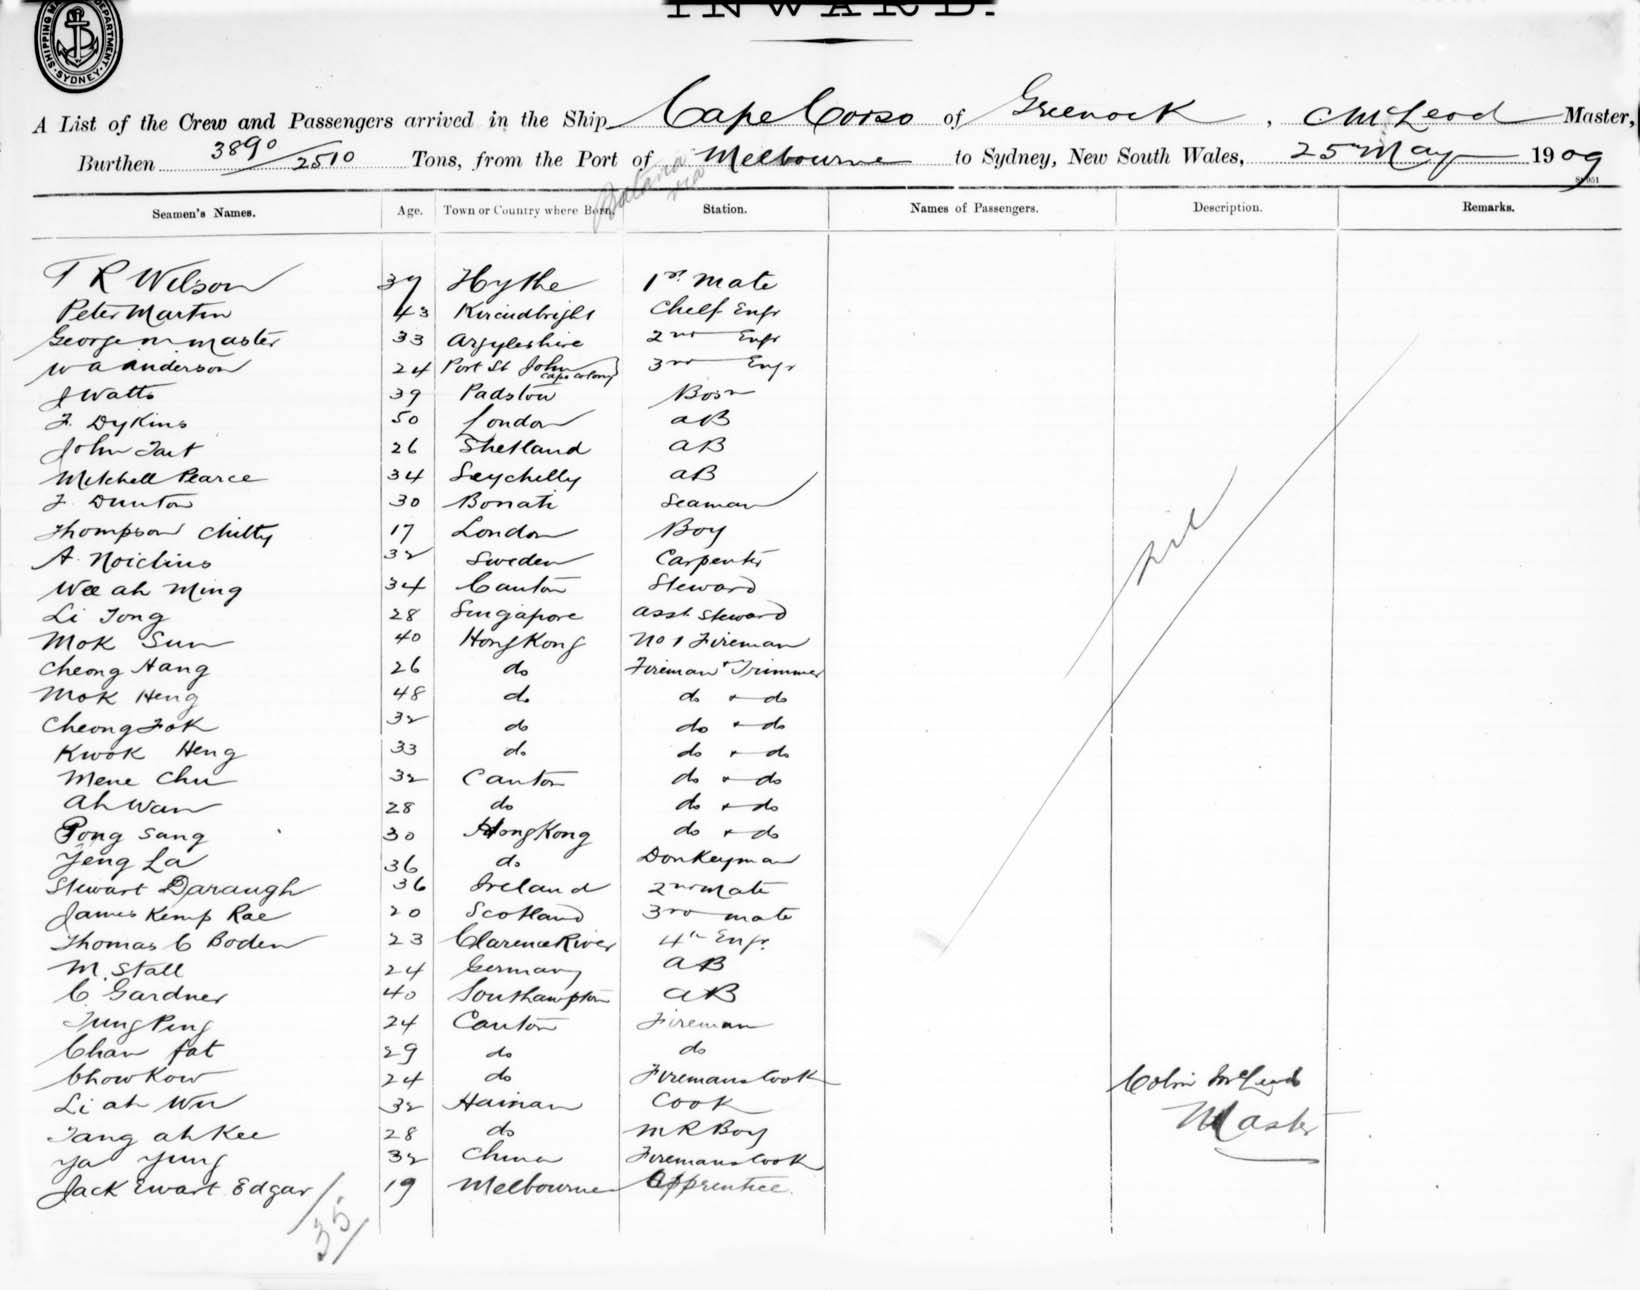 INWARD.
SHIPPING DEPARTMENT. SYDNEY.
A List of the Crew and Passengers arrived in the Ship Cape Corso of Greenock, C McLeod Master,
Burthen 3890/2510 Tons, from the Port of Melbourne to Sydney, New South Wales, 25 May 1909
Batavia via
Seamen's Names. Age. Town or Country where Born. Station. Names of Passengers. Description. Remarks.
T R Wilson 39 Hythe 1st Mate
Peter Martin 43 Kircudbright Cheif Engr
George M Master 33 Argyleshire 2nd Engr
W A Anderson 24 Port St John Cape Colony 3rd Engr
J Watts 39 Padstow Bosn
F. Dykins 50 London AB
John Tait 26 Shetland AB
Mitchell Pearce 34 Seychelly AB
F. Dunton 30 Bonati Seaman
Thompson Chitty 17 London Boy
A. Noiclius 32 Sweden Carpenter
Wee ah Ming 34 Canton Steward
Li Tong 28 Singapore Asst Steward
Mok Sun 40 Hong Kong No 1 Fireman
Cheong Hang 26 do Fireman & Trimmer
Mok Heng 48 do do & do
Cheong Fok 32 do do & do
Kwok Heng 33 do do & do
Mene Chu 32 Canton do & do
Ah Wan 28 do do & do
Pong Sang 30 Hong Kong do & do
Yeng La 36 do Donkeyman
Stewart Daraugh 36 Ireland 2nd Mate
James Kemp Rae 20 Scotland 3rd Mate
Thomas C Boden 23 Clarence River 4th Engr.
M. Stall 24 Germany AB
C. Gardner 40 Southampton AB
Tung Ping 24 Canton Fireman
Chan fat 29 do do
Chow Kow 24 do Firemans Cook
Li ah Wu 32 Hainan Cook
Tang ah Kee 28 do M R Boy
Ya Yung 32 China Firemans Cook
Jack Ewart Edgar 19 Melbourne Apprentice.
35
nil
Colin McLeod
Master